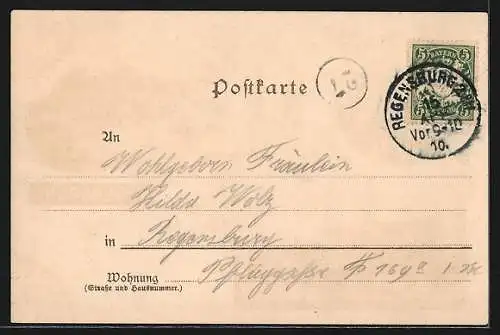 5 BAYERN 5
REGENSBURG
Vor 9-10
10.
Postkarte
An
Wohlgeboren Fräulein
Hilda Wolz
in Regensburg
Wohnung Pfluggasse
(Straße und Hausnummer.)